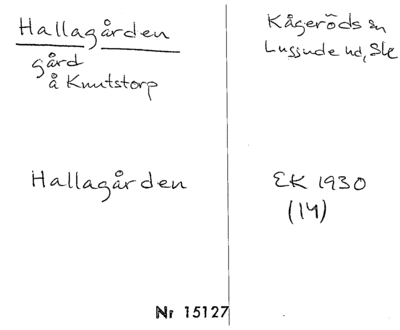 Hallagården
gård
å Knutstorp
Kågeröds sn
Luggude hd, Ske
Hallagården
EK 1930
(14)
Nr 15127